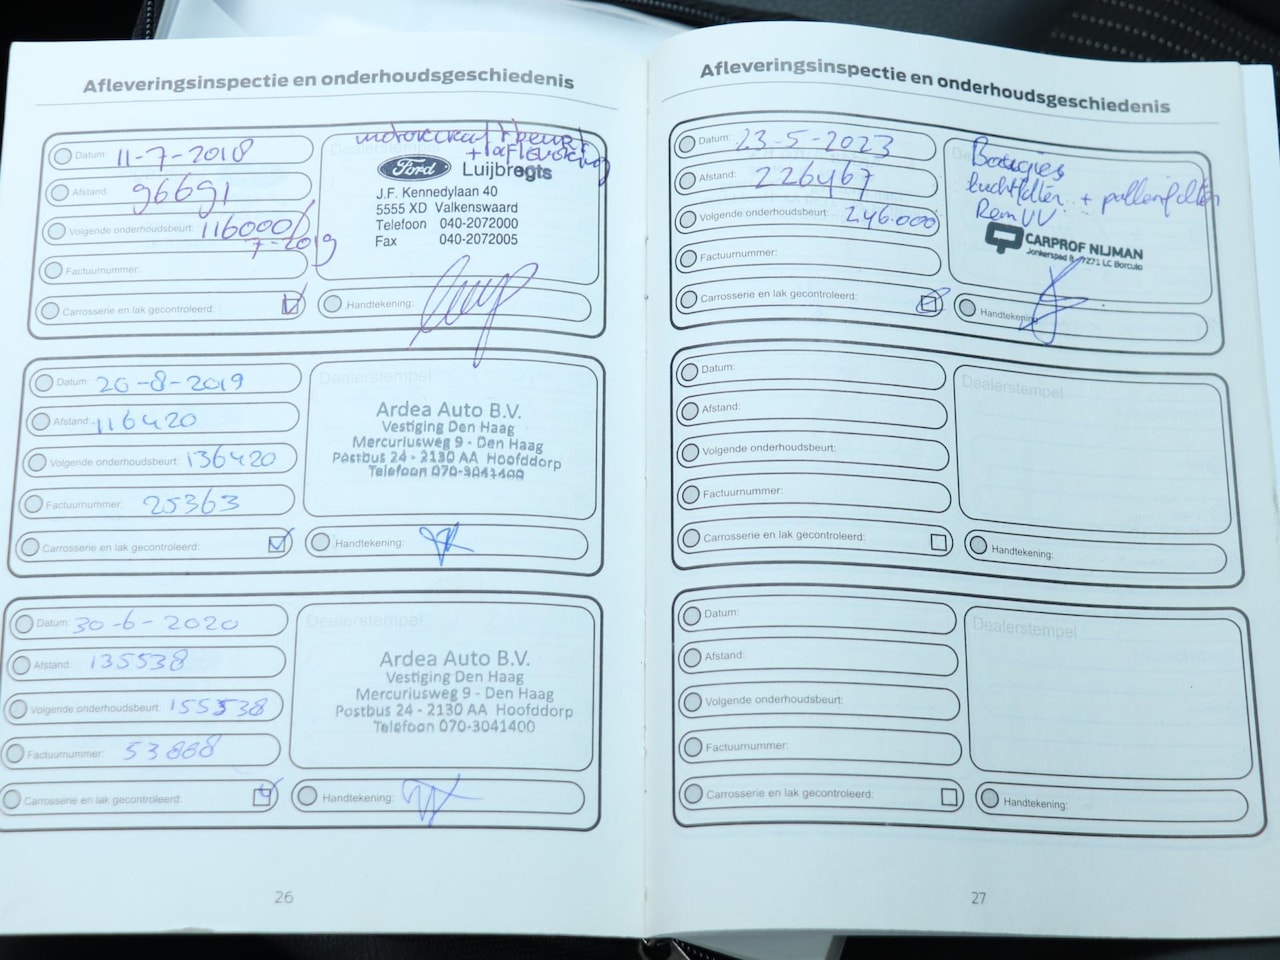 Afleveringsinspectie en onderhoudsgeschiedenis
Datum: 11-7-2018
Afstand: 96691
Volgende onderhoudsbeurt: 116000/
7-2019
Factuurnummer:
Carrosserie en lak gecontroleerd:
beurt
+ aflevering
Ford Luijbregts
J.F. Kennedylaan 40
5555 XD Valkenswaard
Telefoon 040-2072000
Fax 040-2072005
Handtekening:
Datum: 20-8-2019
Afstand: 116420
Volgende onderhoudsbeurt: 136420
Factuurnummer: 25363
Carrosserie en lak gecontroleerd:
Dealerstempel
Ardea Auto B.V.
Vestiging Den Haag
Mercuriusweg 9 - Den Haag
Postbus 24 - 2130 AA Hoofddorp
Telefoon 070-3041400
Handtekening:
Datum: 30-6-2020
Afstand: 135538
Volgende onderhoudsbeurt: 155538
Factuurnummer: 53868
Carrosserie en lak gecontroleerd:
Dealerstempel
Ardea Auto B.V.
Vestiging Den Haag
Mercuriusweg 9 - Den Haag
Postbus 24 - 2130 AA Hoofddorp
Telefoon 070-3041400
Handtekening:
26
Afleveringsinspectie en onderhoudsgeschiedenis
Datum: 23-5-2023
Afstand: 226467
Volgende onderhoudsbeurt: 246.000
Factuurnummer:
Carrosserie en lak gecontroleerd:
Bougies
luchtfilter + pollenfilter
Rem VV
CARPROF NIJMAN
Jonkerspad 8, 7271 LC Borculo
Handtekening:
Datum:
Afstand:
Volgende onderhoudsbeurt:
Factuurnummer:
Carrosserie en lak gecontroleerd:
Dealerstempel
Handtekening:
Datum:
Afstand:
Volgende onderhoudsbeurt:
Factuurnummer:
Carrosserie en lak gecontroleerd:
Dealerstempel
Handtekening:
27